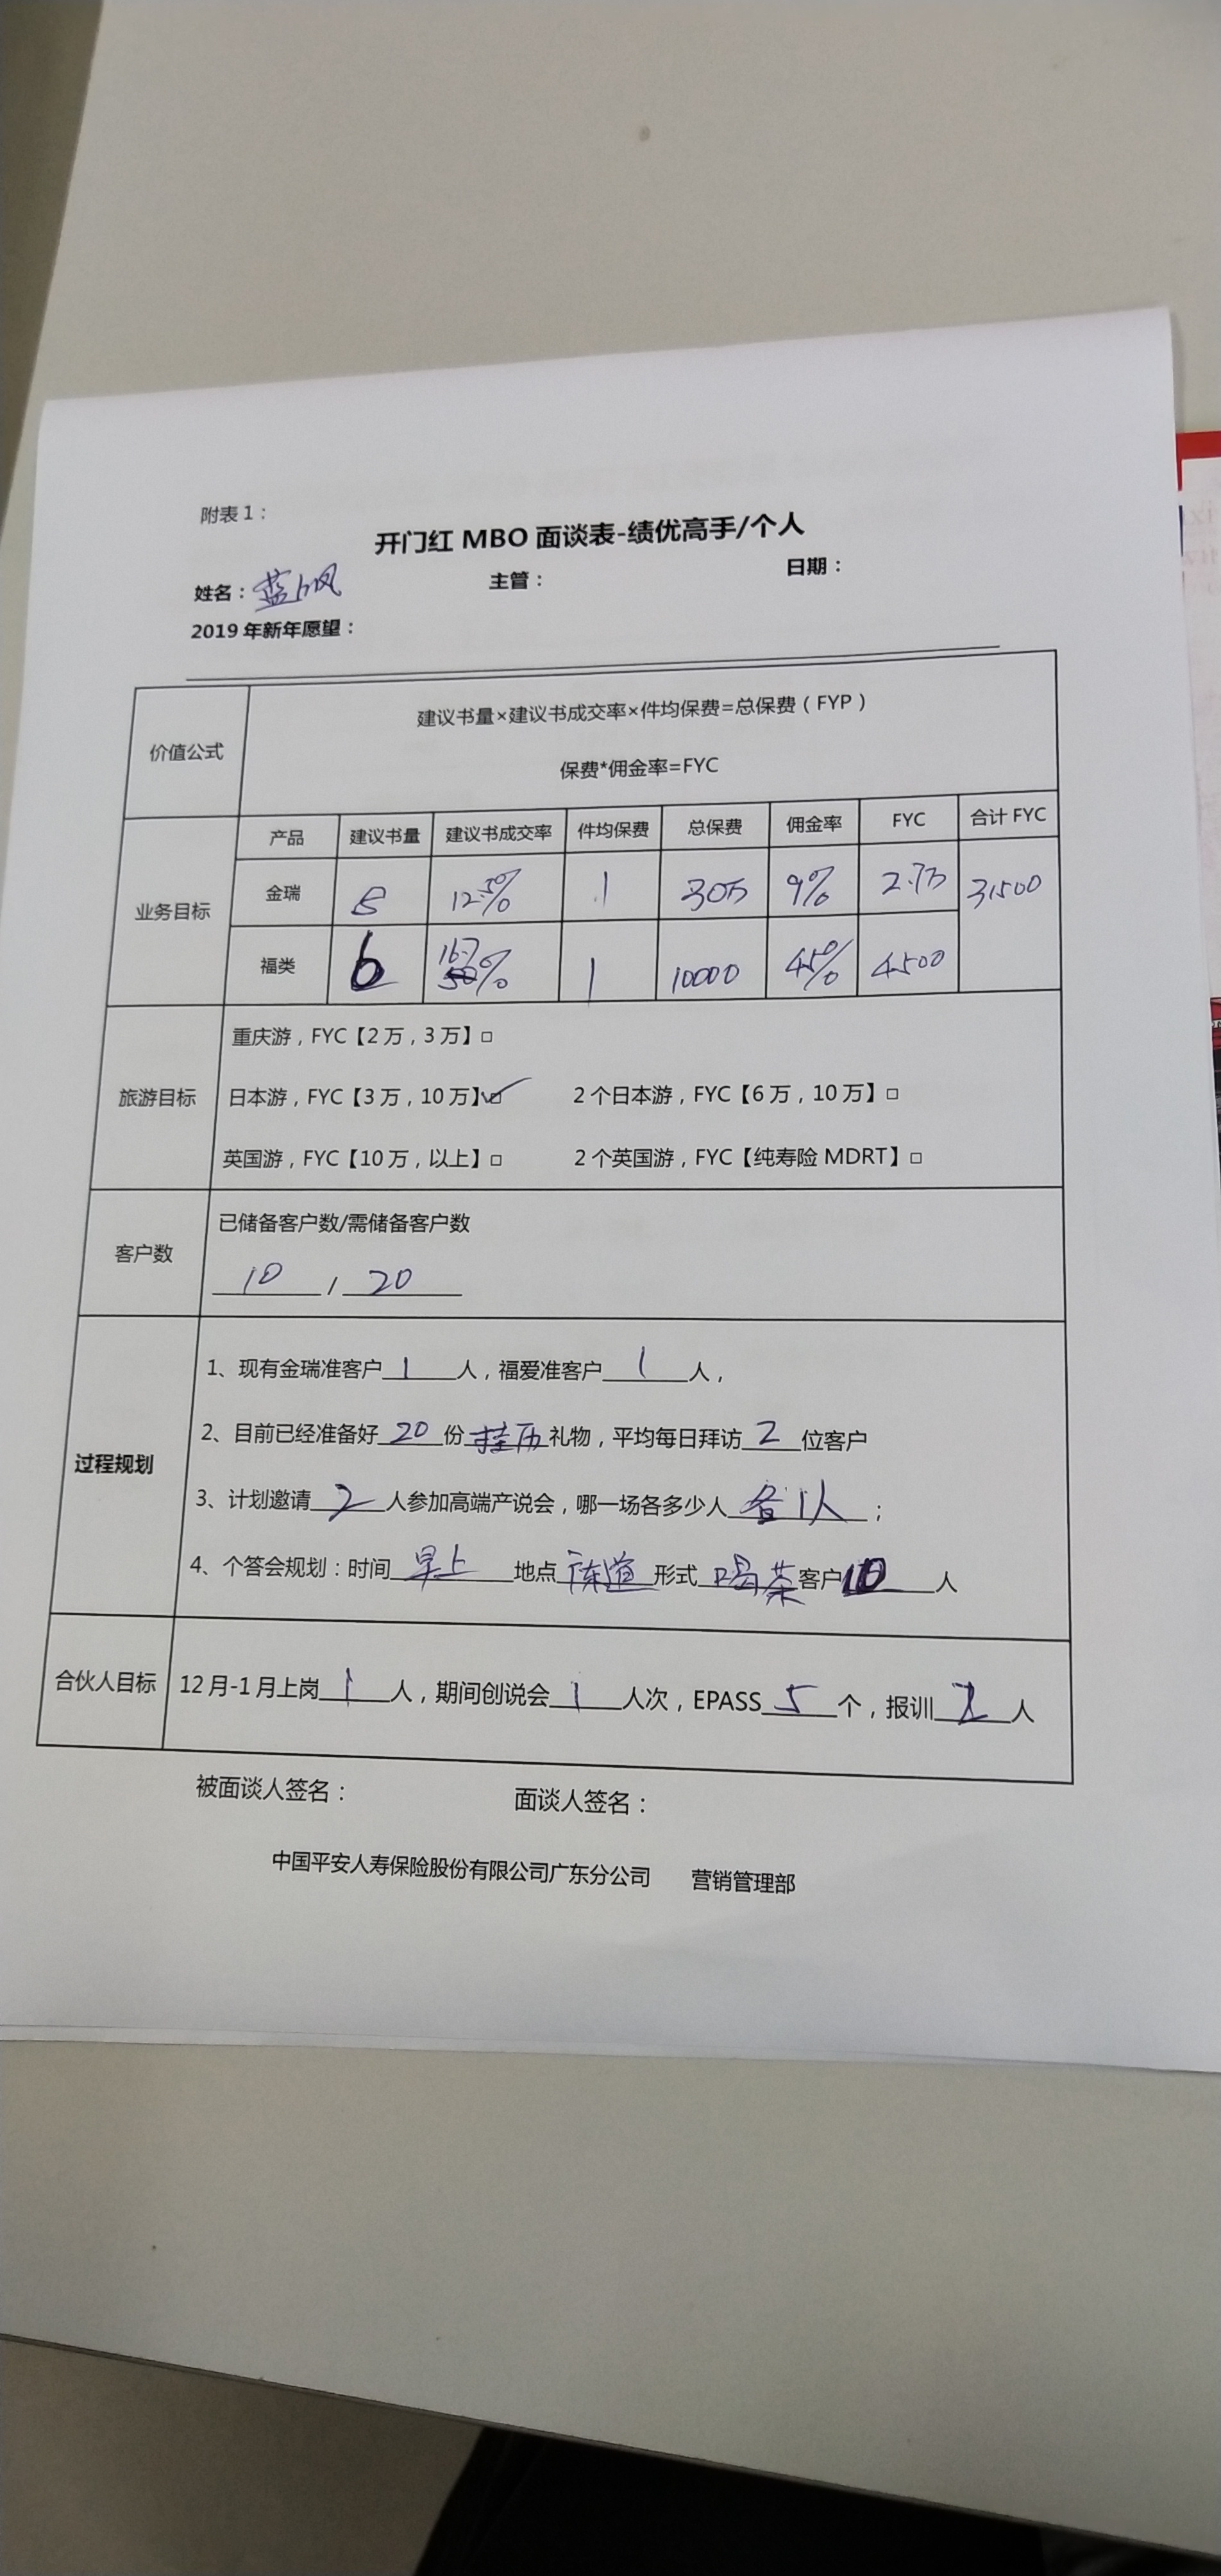 附表1：
开门红 MBO 面谈表-绩优高手/个人
姓名： 主管： 日期：
2019年新年愿望：
价值公式
建议书量×建议书成交率×件均保费=总保费（FYP）
保费*佣金率=FYC
业务目标
产品 建议书量 建议书成交率 件均保费 总保费 佣金率 FYC 合计 FYC
金瑞 8 12.5% 1 30万 9% 2.7万 31500
福类 6 16.7% 1 10000 45% 4500
旅游目标
重庆游，FYC【2万，3万】□
日本游，FYC【3万，10万】☑ 2个日本游，FYC【6万，10万】□
英国游，FYC【10万，以上】□ 2个英国游，FYC【纯寿险 MDRT】□
客户数
已储备客户数/需储备客户数
10 / 20
过程规划
1、现有金瑞准客户 1 人，福爱准客户 1 人，
2、目前已经准备好 20 份 挂历 礼物，平均每日拜访 2 位客户
3、计划邀请 2 人参加高端产说会，哪一场各多少人 各1人 ；
4、个答会规划：时间 早上 地点 形式 喝茶 客户 10 人
合伙人目标
12月-1月上岗 1 人，期间创说会 1 人次，EPASS 5 个，报训 人
被面谈人签名： 面谈人签名：
中国平安人寿保险股份有限公司广东分公司 营销管理部